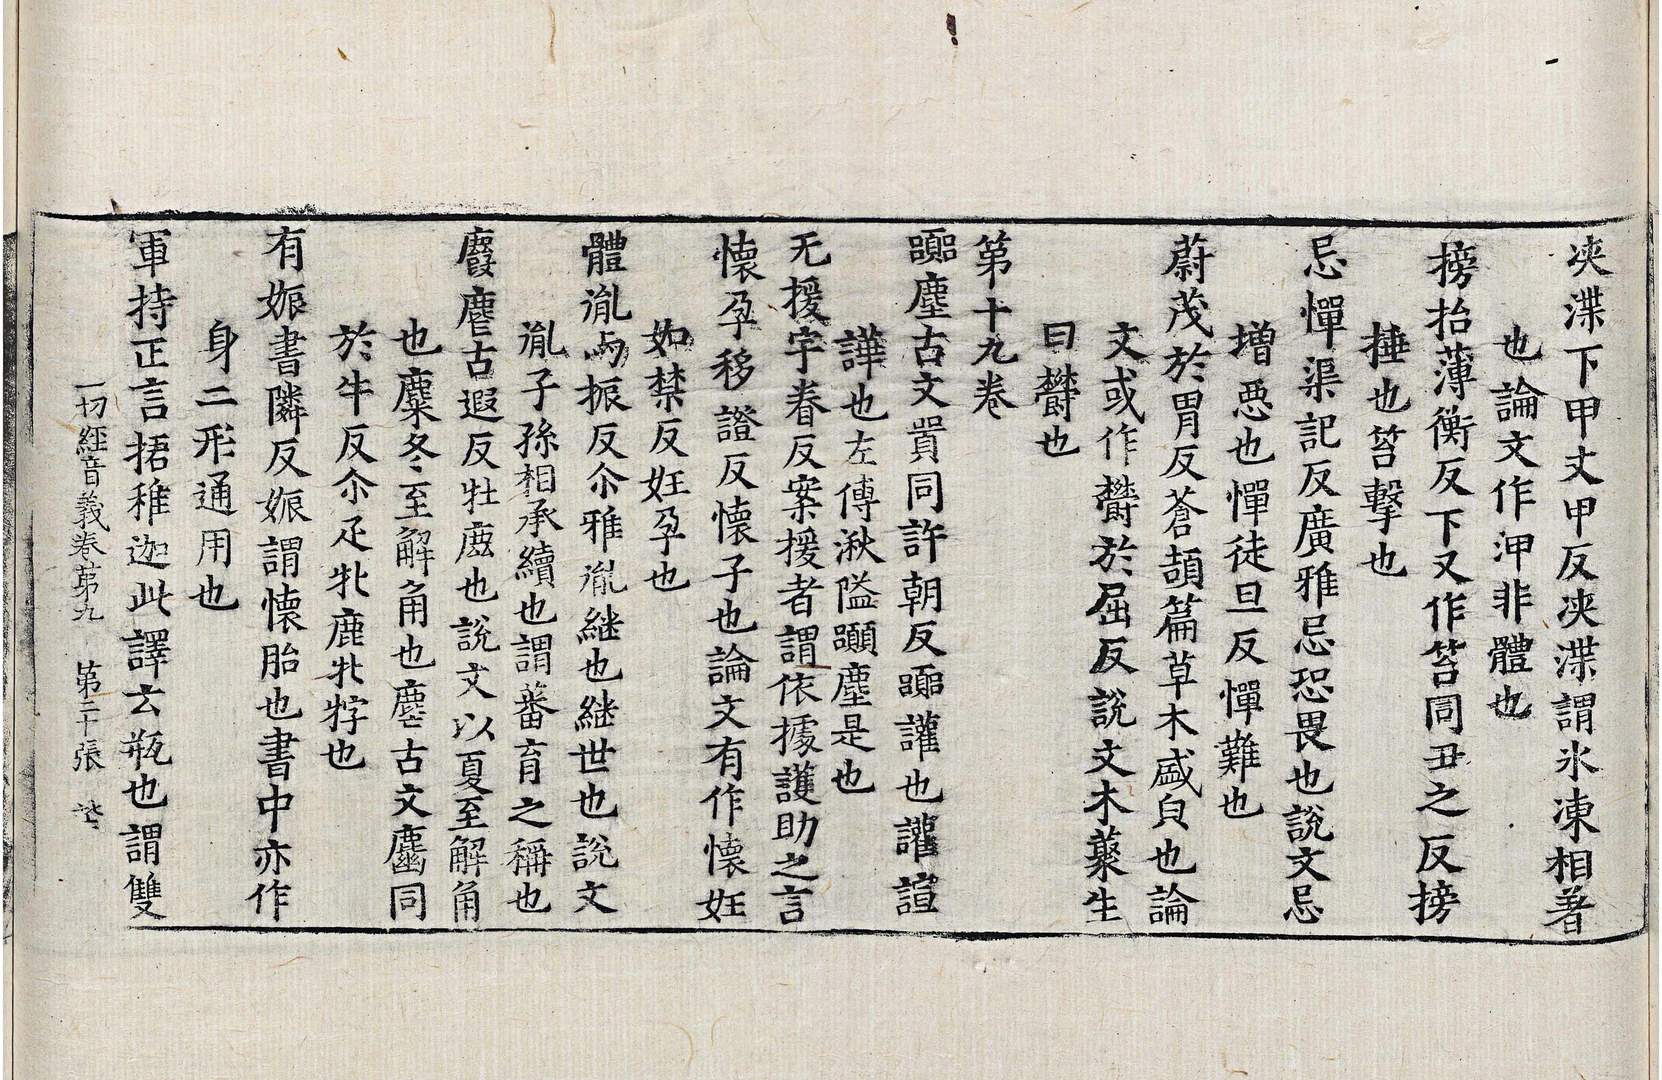 浹渫下甲丈甲反浹渫謂氷凍相著
也論文作浀非體也
搒抬薄衡反下又作笞同丑之反搒
捶也笞擊也
忌憚渠記反廣雅忌恐畏也說文忌
增惡也憚徒旦反憚難也
蔚茂於胃反蒼頡篇草木盛皃也論
文或作欝於屈反說文木藂生
曰欝也
第十九卷
塵古文買同許朝反讙也讙諠
譁也左傳湫隘塵是也
无援宇眷反案援者謂依據護助之言
懷孕移證反懷子也論文有作懷妊
如禁反妊孕也
體胤与振反尒雅胤継也継世也說文
胤子孫相承續也謂蕃育之稱也
麚麠古遐反牡麠也說文以夏至解角
也麋冬至解角也塵古文麤同
於牛反尒疋牝鹿牝牸也
有娠書隣反娠謂懷胎也書中亦作
身二形通用也
軍持正言捃稚迦此譯云瓶也謂雙
一切經音義卷第九 第二十張